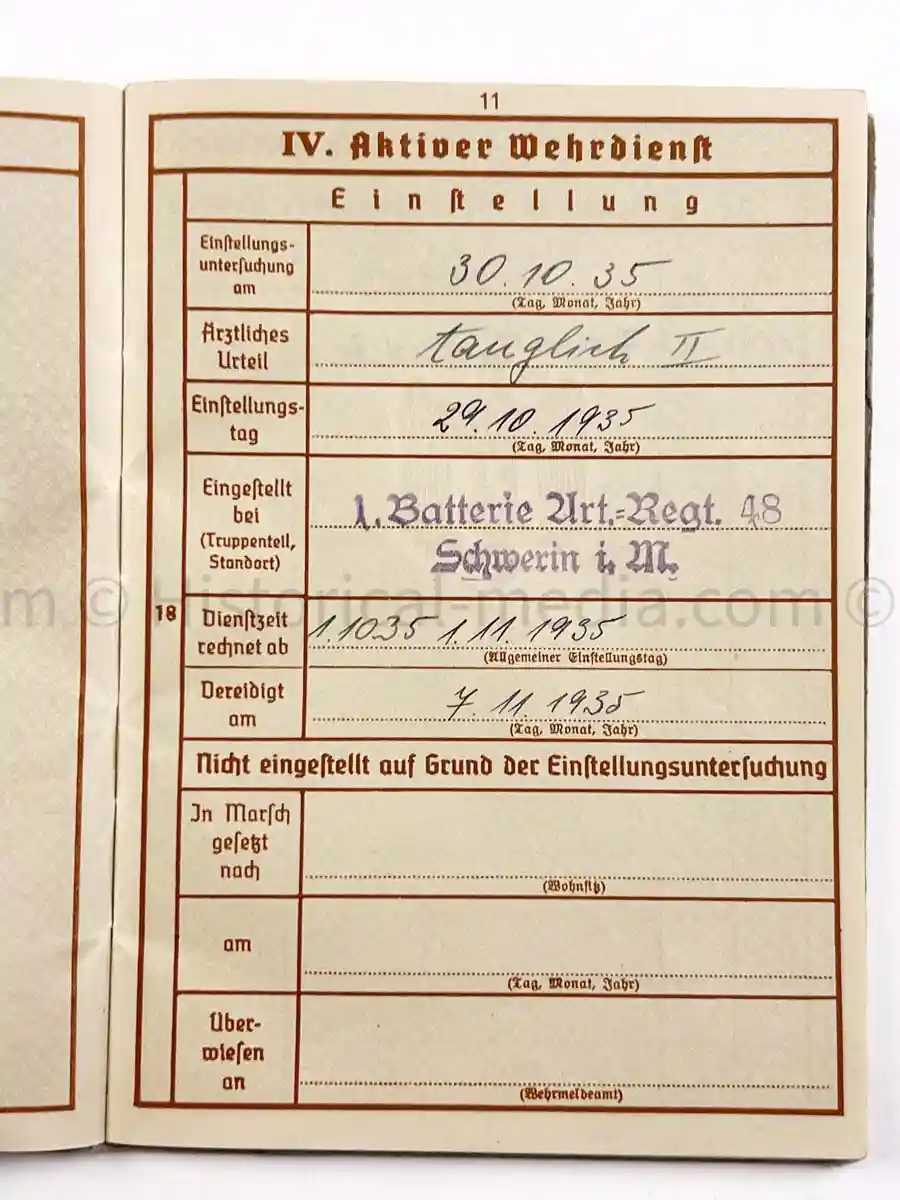 11
IV. Aktiver Wehrdienst
Einstellung
Einstellungs-
untersuchung
am
30.10.35
(Tag, Monat, Jahr)
Ärztliches
Urteil
tauglich II
Einstellungs-
tag
29.10.1935
(Tag, Monat, Jahr)
Eingestellt
bei
(Truppenteil,
Standort)
1. Batterie Art.=Regt. 48
Schwerin i. M.
m © Historical-media.com ©
18
Dienstzeit
rechnet ab
1.10 35 1.11.1935
(Allgemeiner Einstellungstag)
Vereidigt
am
7.11.1935
(Tag, Monat, Jahr)
Nicht eingestellt auf Grund der Einstellungsuntersuchung
In Marsch
gesetzt
nach
(Wohnsitz)
am
(Tag, Monat, Jahr)
Über-
wiesen
an
(Wehrmeldeamt)